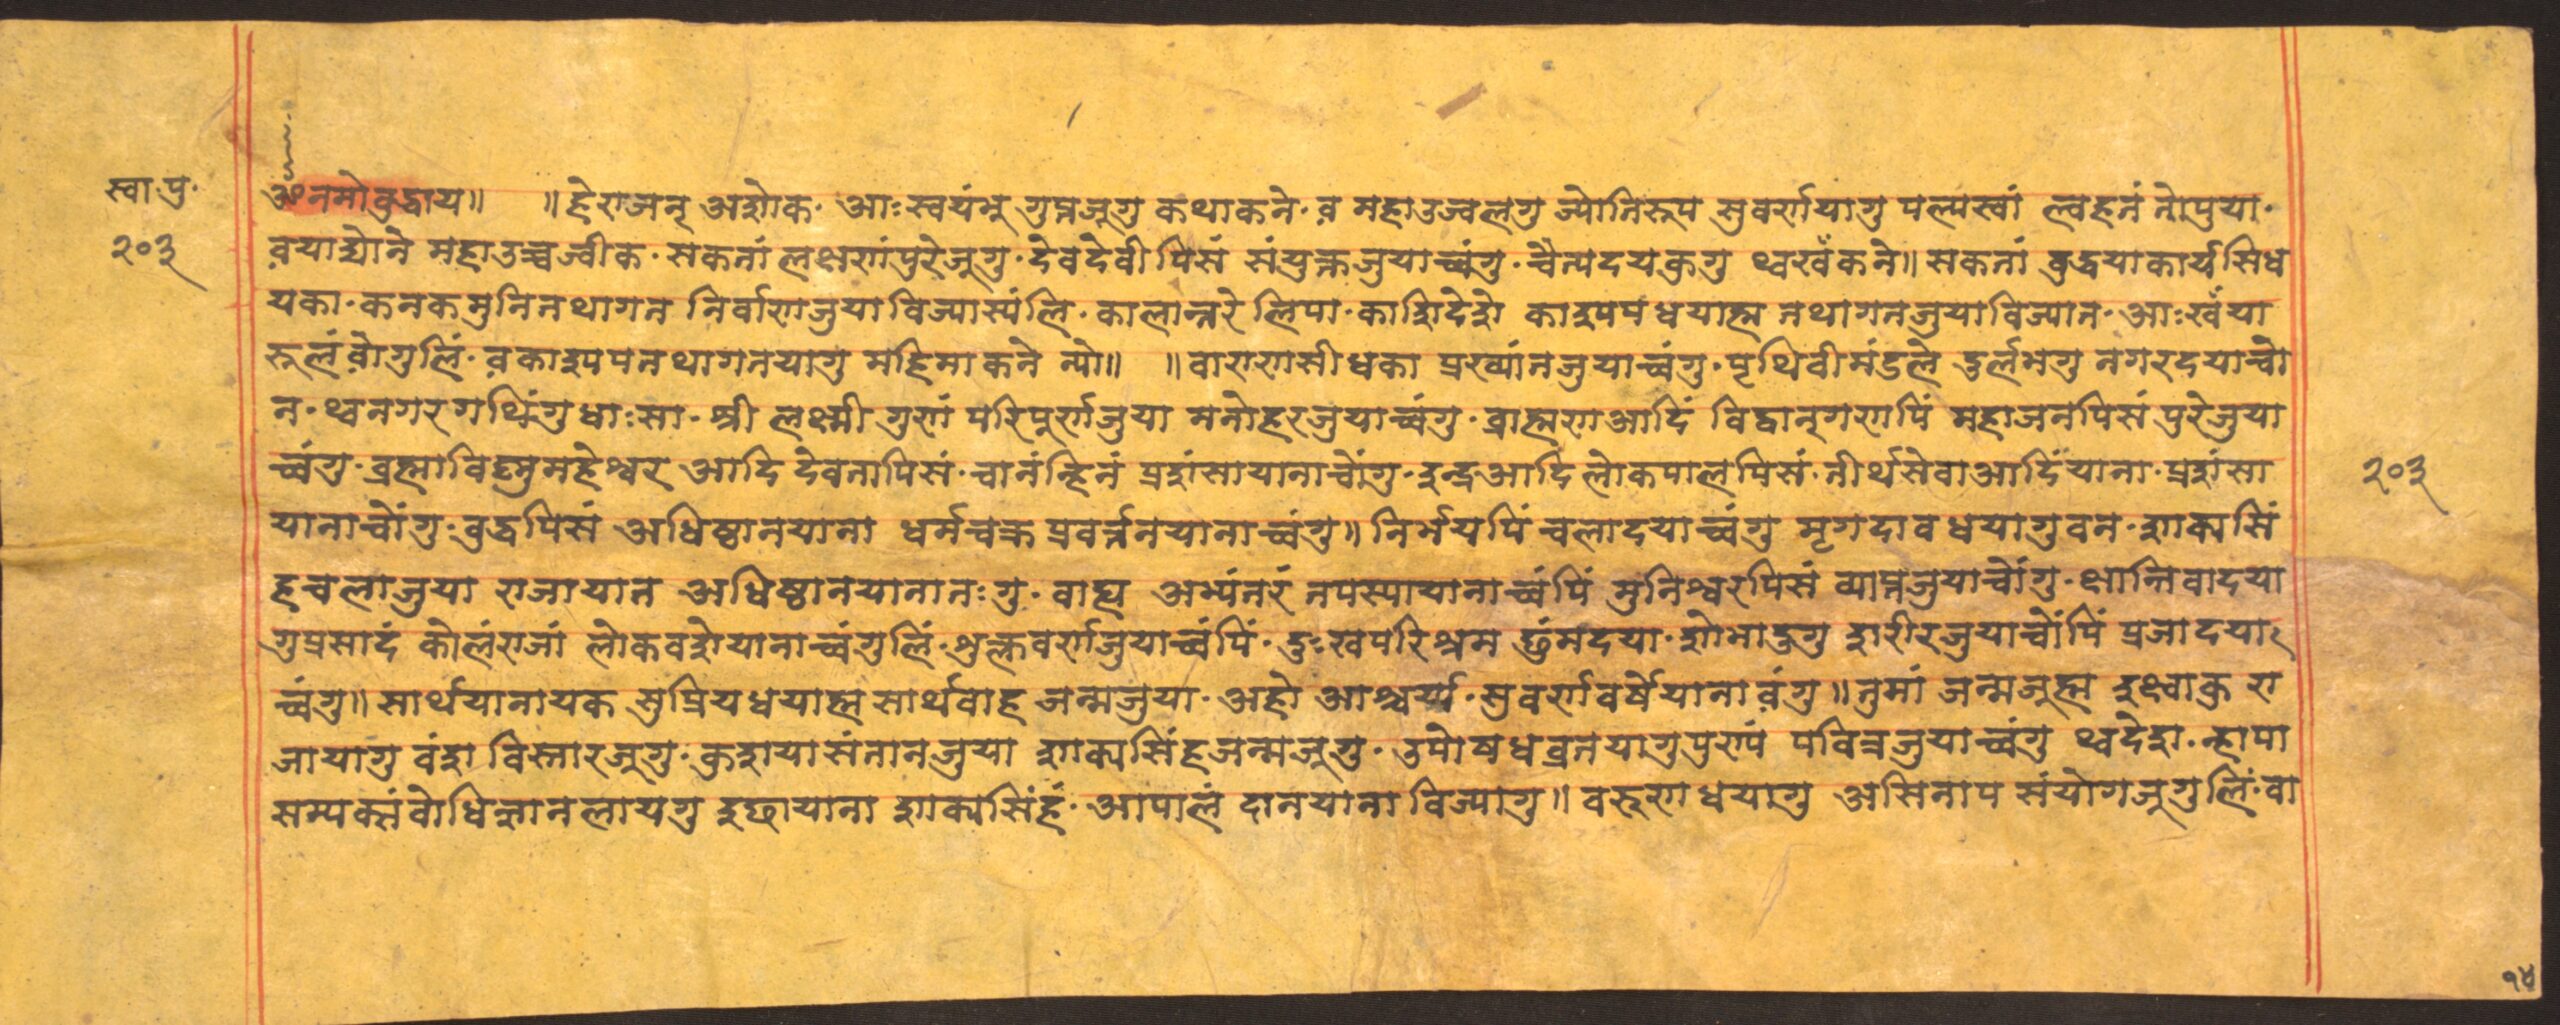 स्वा.पु.
२०३
ॐ नमो बुद्धाय॥ ॥हे राजन् अशोक. आः स्वयंभू गुप्तजूगु कथाकने. व महाउज्वलगु ज्योतिरूप सुवर्णयागु पलेस्वां ल्वहनं तोपुया.
वयाद्योने महाउच्चज्वीक. सकतां लक्षणंपुरेजूगु. देवदेवी पिसं संयुक्तजुयाच्वंगु. चैत्यदयकुगु थ्वखँकने॥ सकतां बुद्धयाकार्यसिध
यका. कनकमुनितथागत निर्वाणजुयाविज्यास्यंलि. कालान्तरे लिपा. काशिदेशे काश्यप धयाह्म तथागतजुयाविज्यात. आःखँया
मूलंवोगुलिं. वकाश्यपतथागतयागु महिमाकने न्यो॥ ॥वाराणसीधका प्रख्यांतजुयाच्वंगु. पृथिवीमंडले दुर्लभगु नगरदयाच्वो
न. थ्वनगर गथिंगुधाःसा. श्री लक्ष्मी गुणं परिपूर्णजुया मनोहरजुयाच्वंगु. ब्राह्मणआदिं विद्वान्गणपिं महाजनपिसं पुरेजुया
च्वंगु. ब्रह्माविष्णुमहेश्वर आदि देवतापिसं. चानंन्हिनं प्रशंसायानाच्वोंगु. इन्द्रआदि लोकपालपिसं. तीर्थसेवाआदिंयाना. प्रशंसा
यानाच्वोंगु. बुद्धपिसं अधिष्ठानयाना धर्मचक्र प्रवर्त्तनयानाच्वंगु॥ निर्भयपिं चलादयाच्वंगु मृगदाव धयागुवन. शाक्यसिं
हचलाजुया राजायात अधिष्ठानयानातःगु. वाह्य अभ्यंतरं तपस्यायानाच्वंपिं मुनिश्वरपिसं व्याप्तजुयाच्वोंगु. क्षान्तिवादया
गुप्रसादं कोलंराजां लोकवशेयानाच्वंगुलिं. शुक्लवर्णजुयाच्वंपिं. दुःखपरिश्रम छुंमदया. शोभाजुगु शरीरजुयाच्वोंपिं प्रजादया
च्वंगु॥ सार्थयानायक सुप्रियधयाह्म सार्थवाह जन्मजुया. अहो आश्चर्य्य. सुवर्णवर्षेयानावंगु॥ तुमां जन्मजूह्म इक्ष्वाकु रा
जायागु वंश विस्तारजूगु. कुशयासंतानजुया शाक्यसिंहजन्मजूगु. उपोषधव्रतयागुपुण्यं पवित्रजुयाच्वंगु थ्वदेश. न्हापा
सम्यक्संबोधिज्ञानलायगु इछायाना शाक्यसिंहं. आपालं दानयाना विज्यागु॥ वरूणा धयागु असिनाप संयोगजूगुलिं. वा
२०३
१४